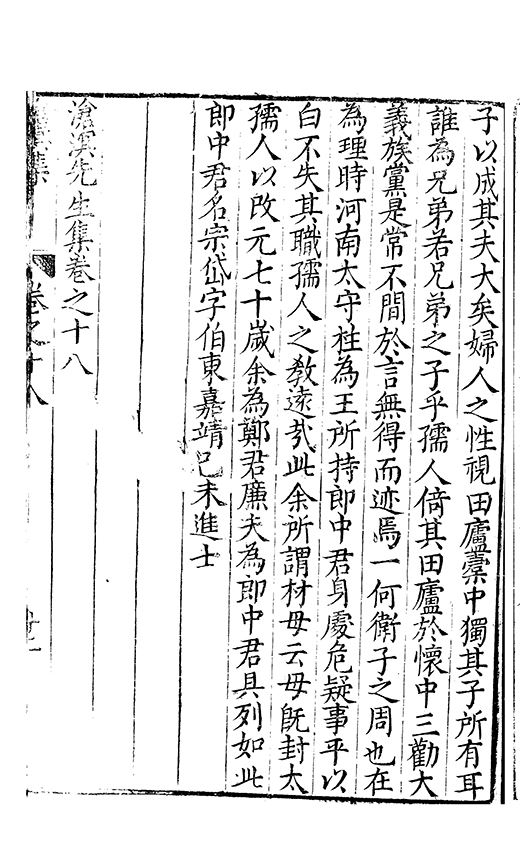 子以成其夫大矣婦人之性視田廬橐中獨其子所有耳
誰為兄弟若兄弟之子乎孺人倚其田廬於懷中三勸大
義族黨是常不間於言無得而迹焉一何衛子之周也在
為理時河南太守柱為王所持郎中君身處危疑事平以
白不失其職孺人之教遠哉此余所謂材母云母既封太
孺人以改元七十歲余為鄭君廉夫為郎中君具列如此
郎中君名宗岱字伯東嘉靖己未進士
滄溟先生集卷之十八
卷之十八